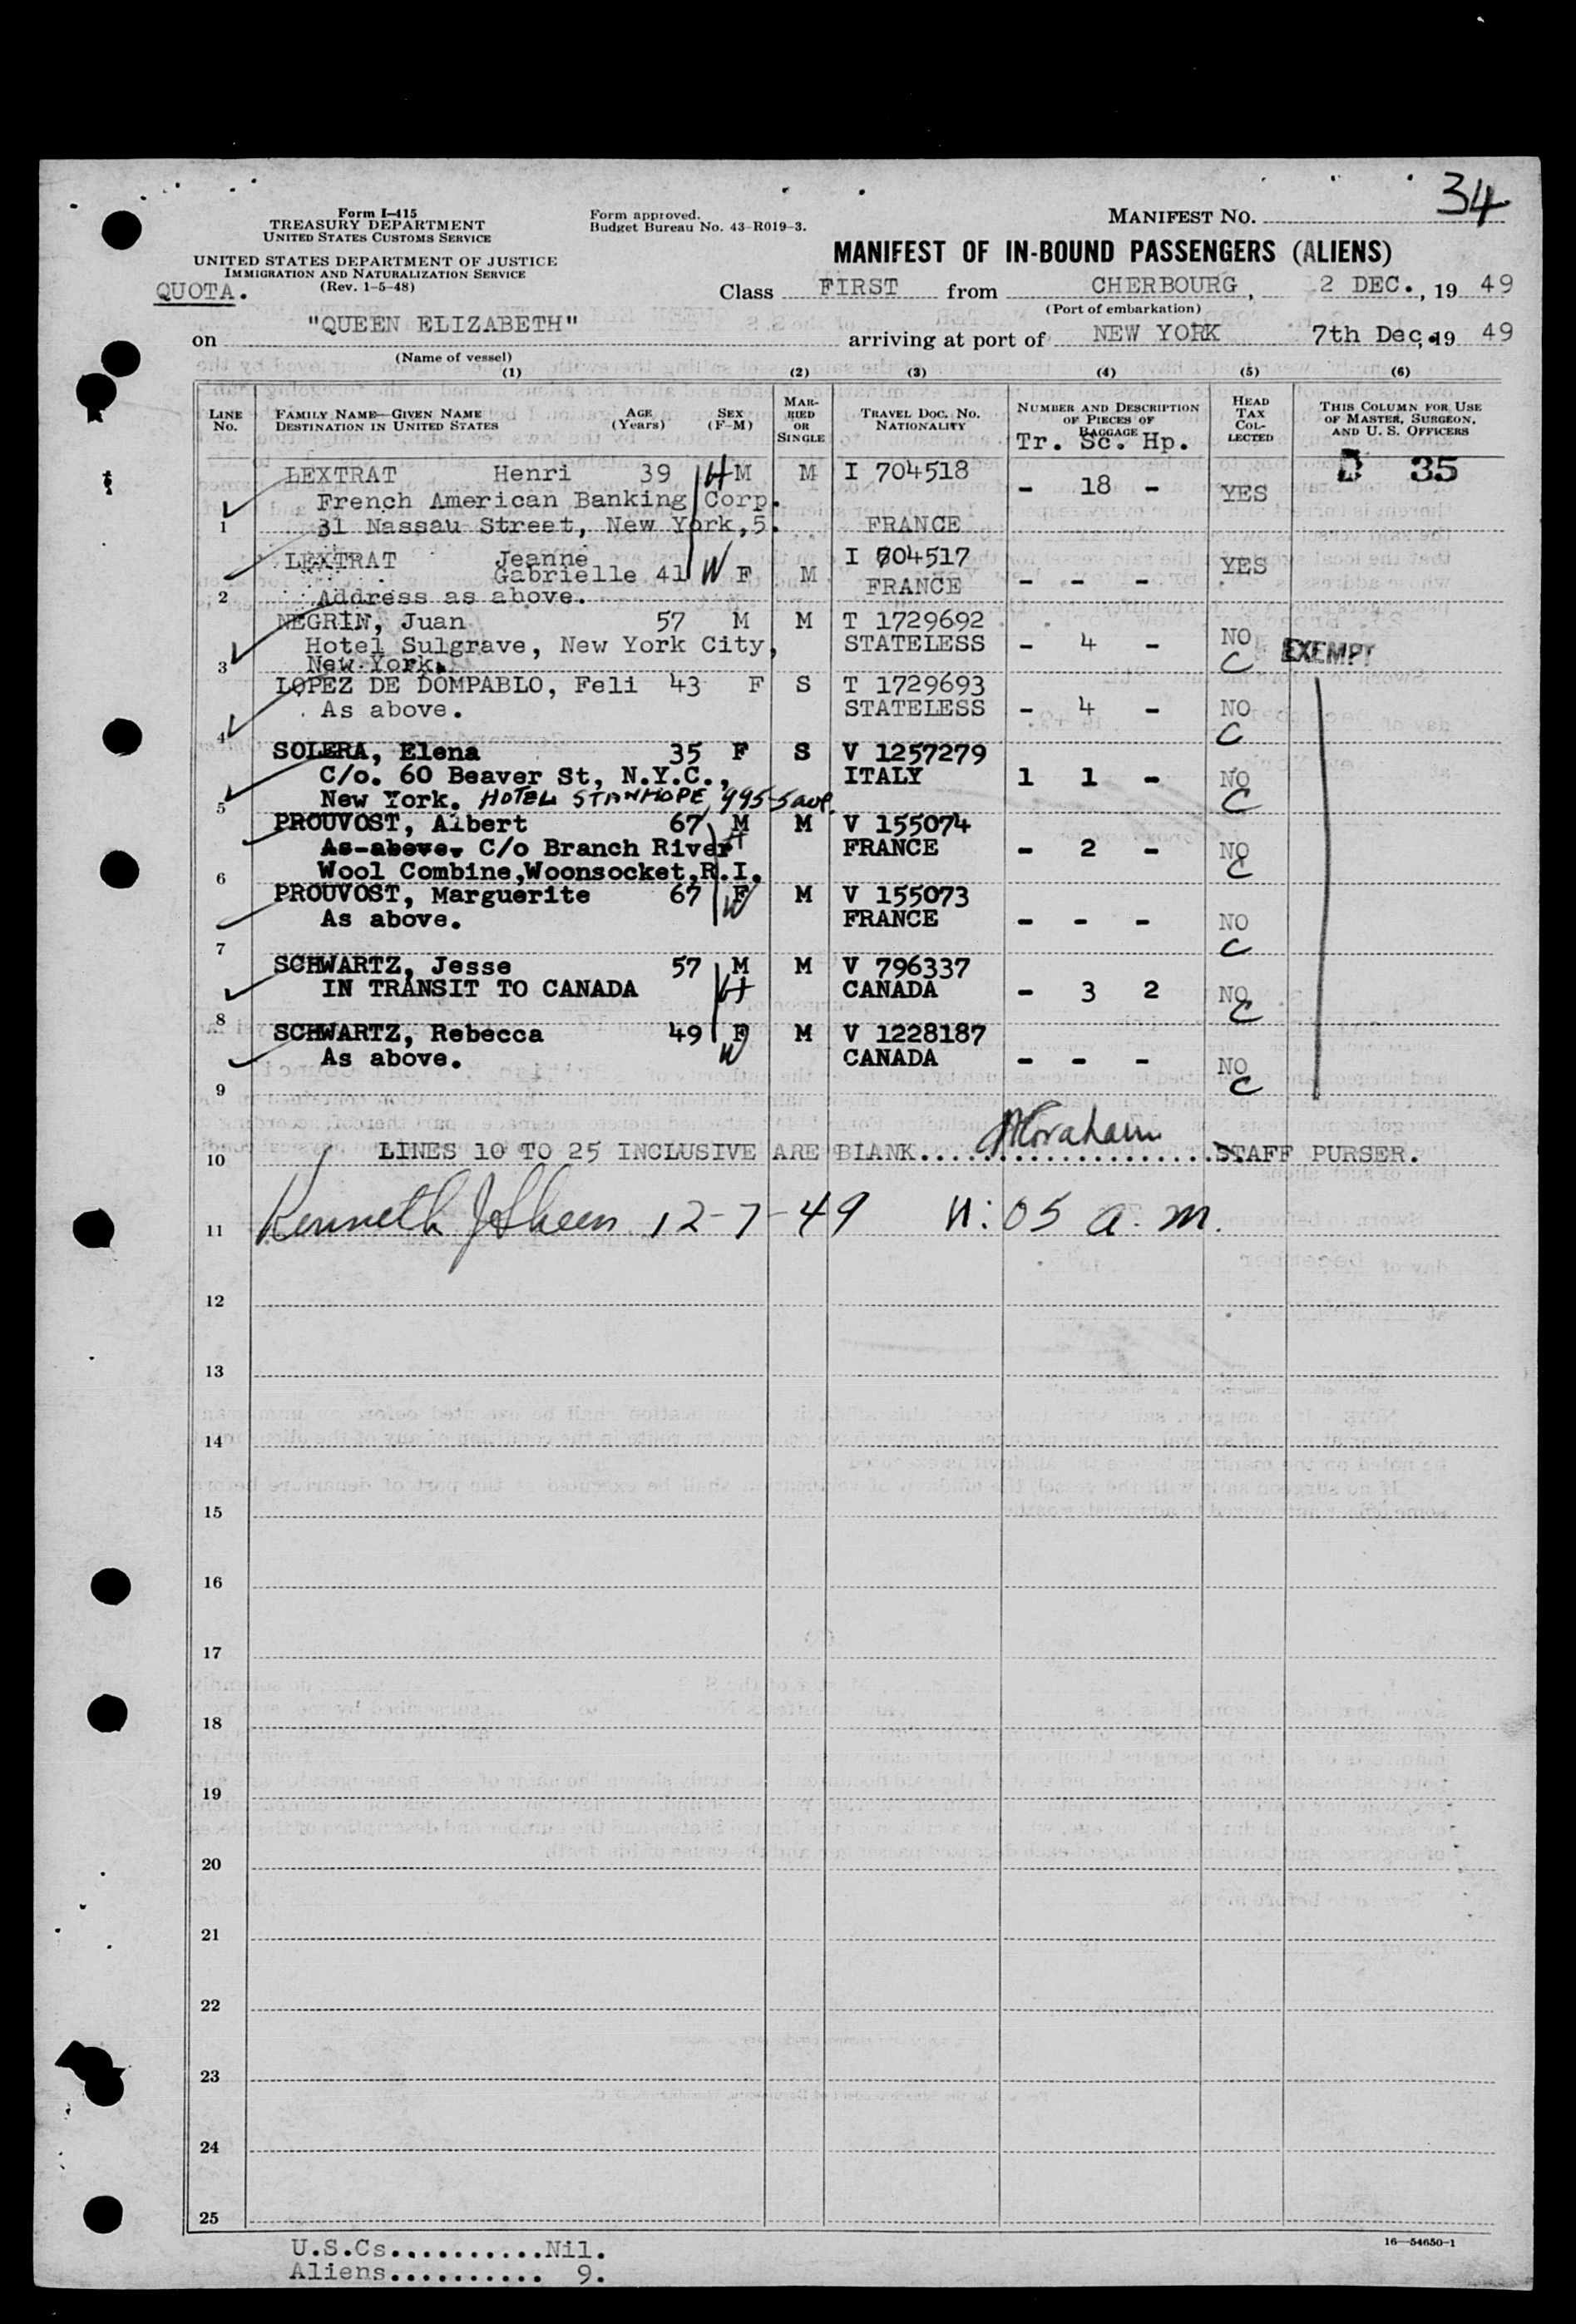 34
Form I-415
TREASURY DEPARTMENT
UNITED STATES CUSTOMS SERVICE
UNITED STATES DEPARTMENT OF JUSTICE
IMMIGRATION AND NATURALIZATION SERVICE
(Rev. 1-5-48)
QUOTA.
Form approved.
Budget Bureau No. 43-R019-3.
MANIFEST NO.
MANIFEST OF IN-BOUND PASSENGERS (ALIENS)
Class FIRST from CHERBOURG, 2 DEC., 19 49
(Port of embarkation)
on "QUEEN ELIZABETH" arriving at port of NEW YORK 7th Dec, 19 49
(Name of vessel)
(1) (2) (3) (4) (5) (6)
LINE No. FAMILY NAME—GIVEN NAME DESTINATION IN UNITED STATES AGE (Years) SEX (F-M) MARRIED OR SINGLE TRAVEL DOC. NO. NATIONALITY NUMBER AND DESCRIPTION OF PIECES OF BAGGAGE Tr. Sc. Hp. HEAD TAX COLLECTED THIS COLUMN FOR USE OF MASTER, SURGEON, AND U. S. OFFICERS
LEXTRAT Henri 39 H M M I 704518 - 18 - YES D 35
French American Banking Corp.
1 31 Nassau Street, New York,5. FRANCE
LEXTRAT Jeanne Gabrielle 41 W F M I 704517 FRANCE - - - YES
2 Address as above.
NEGRIN, Juan 57 M M T 1729692
Hotel Sulgrave, New York City, STATELESS - 4 - NO C EXEMPT
3 New York.
LOPEZ DE DOMPABLO, Feli 43 F S T 1729693
4 As above. STATELESS - 4 - NO C
SOLERA, Elena 35 F S V 1257279
C/o. 60 Beaver St, N.Y.C., ITALY 1 1 - NO C
5 New York. HOTEL STANHOPE, 995-5 ave.
PROUVOST, Albert 67 M M V 155074
As above. C/o Branch River H FRANCE - 2 - NO C
6 Wool Combine,Woonsocket,R.I.
PROUVOST, Marguerite 67 F W M V 155073
7 As above. FRANCE - - - NO C
SCHWARTZ, Jesse 57 M M V 796337
8 IN TRANSIT TO CANADA H CANADA - 3 2 NO C
SCHWARTZ, Rebecca 49 F M V 1228187
9 As above. W CANADA - - - NO C
10 LINES 10 TO 25 INCLUSIVE ARE BLANK....................STAFF PURSER.
11 Kenneth J Sheen 12-7-49 11:05 a.m.
12
13
14
15
16
17
18
19
20
21
22
23
24
25
U.S.Cs...........Nil.
Aliens.......... 9.
16—54650-1